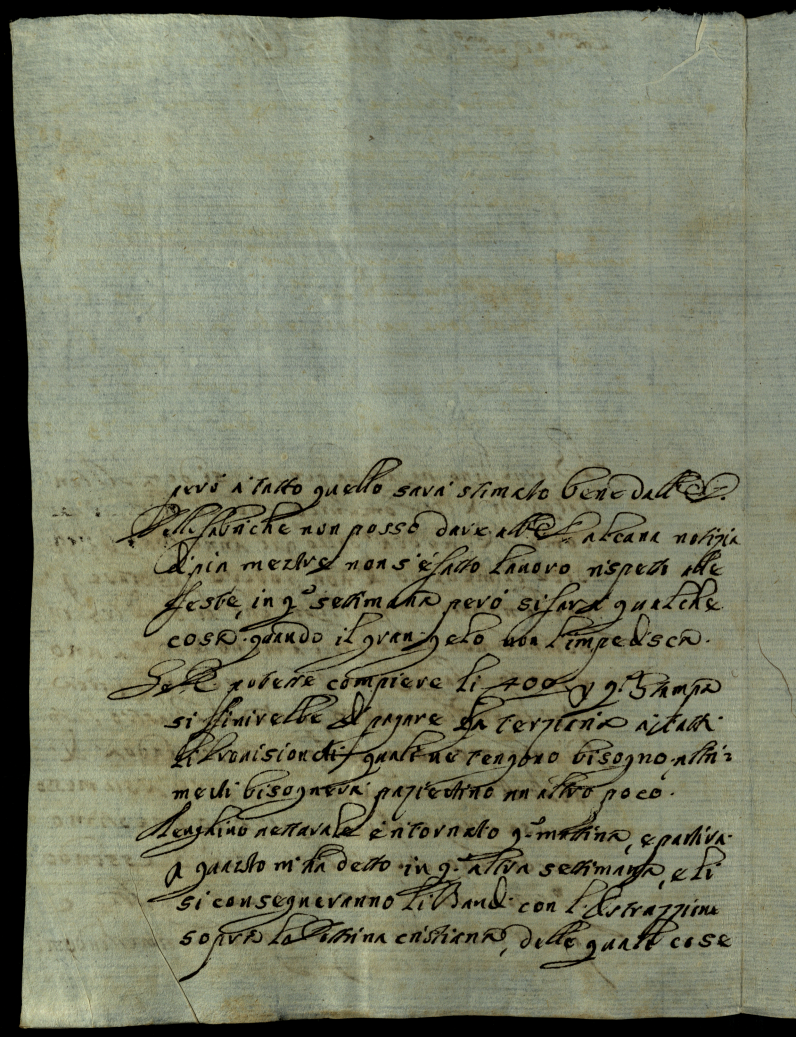 però à tutto quello sarà stimato bene dall'
Delle fabriche non posso dare all' alcuna notizia
di più mentre non s'è fatto lavoro rispetto alle
feste, in q.ª settimana però si farà qualche
cosa quando il gran gelo non l'impedisca.
Se potesse compiere li 400 q.ª stampa
si finirebbe di pagare la terziaria à tutti
li provisionati quali ne tengono bisogno, altri=
menti bisognerà pazientino un altro poco.
è ritornato q.ª mattina, e partirà
quanto m'hà detto in q.ª altra settimana, e li
si consegneranno li Bandi con l'Istruzzione
sopra la Dottrina cristiana, delle quali cose